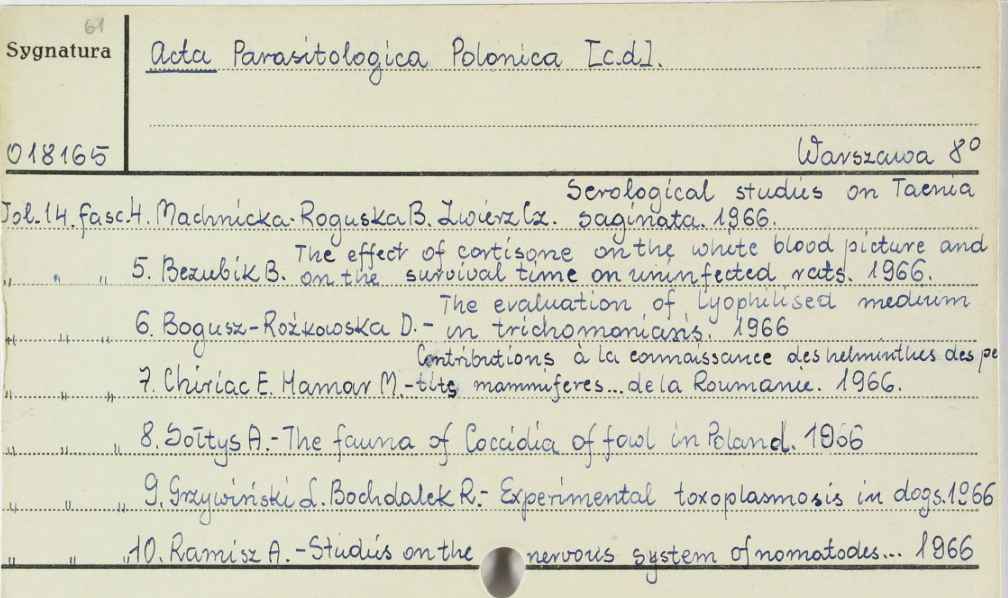 61
Sygnatura
Acta Parasitologica Polonica [c.d].
018165
Warszawa 8º
Serological studies on Taenia
Vol. 14. fasc. 4. Machnicka-Roguska B. Zwierz Cz. saginata. 1966.
The effect of cortisone on the white blood picture and
„ „ „ 5. Bezubik B. on the survival time on uninfected rats. 1966.
The evaluation of lyophilised medium
„ „ „ 6. Bogusz-Rożkowska D. - in trichomoniasis. 1966
Contributions à la connaissance des helminthes des pe
„ „ „ 7. Chiriac E. Hamar M. - tits mammiferes... de la Roumanie. 1966.
„ „ „ 8. Sołtys A. - The fauna of Coccidia of fowl in Poland. 1966
„ „ „ 9. Grzywiński L. Bochdalek R. - Experimental toxoplasmosis in dogs. 1966
„ „ „ 10. Ramisz A. - Studies on the nervous system of nomatodes... 1966